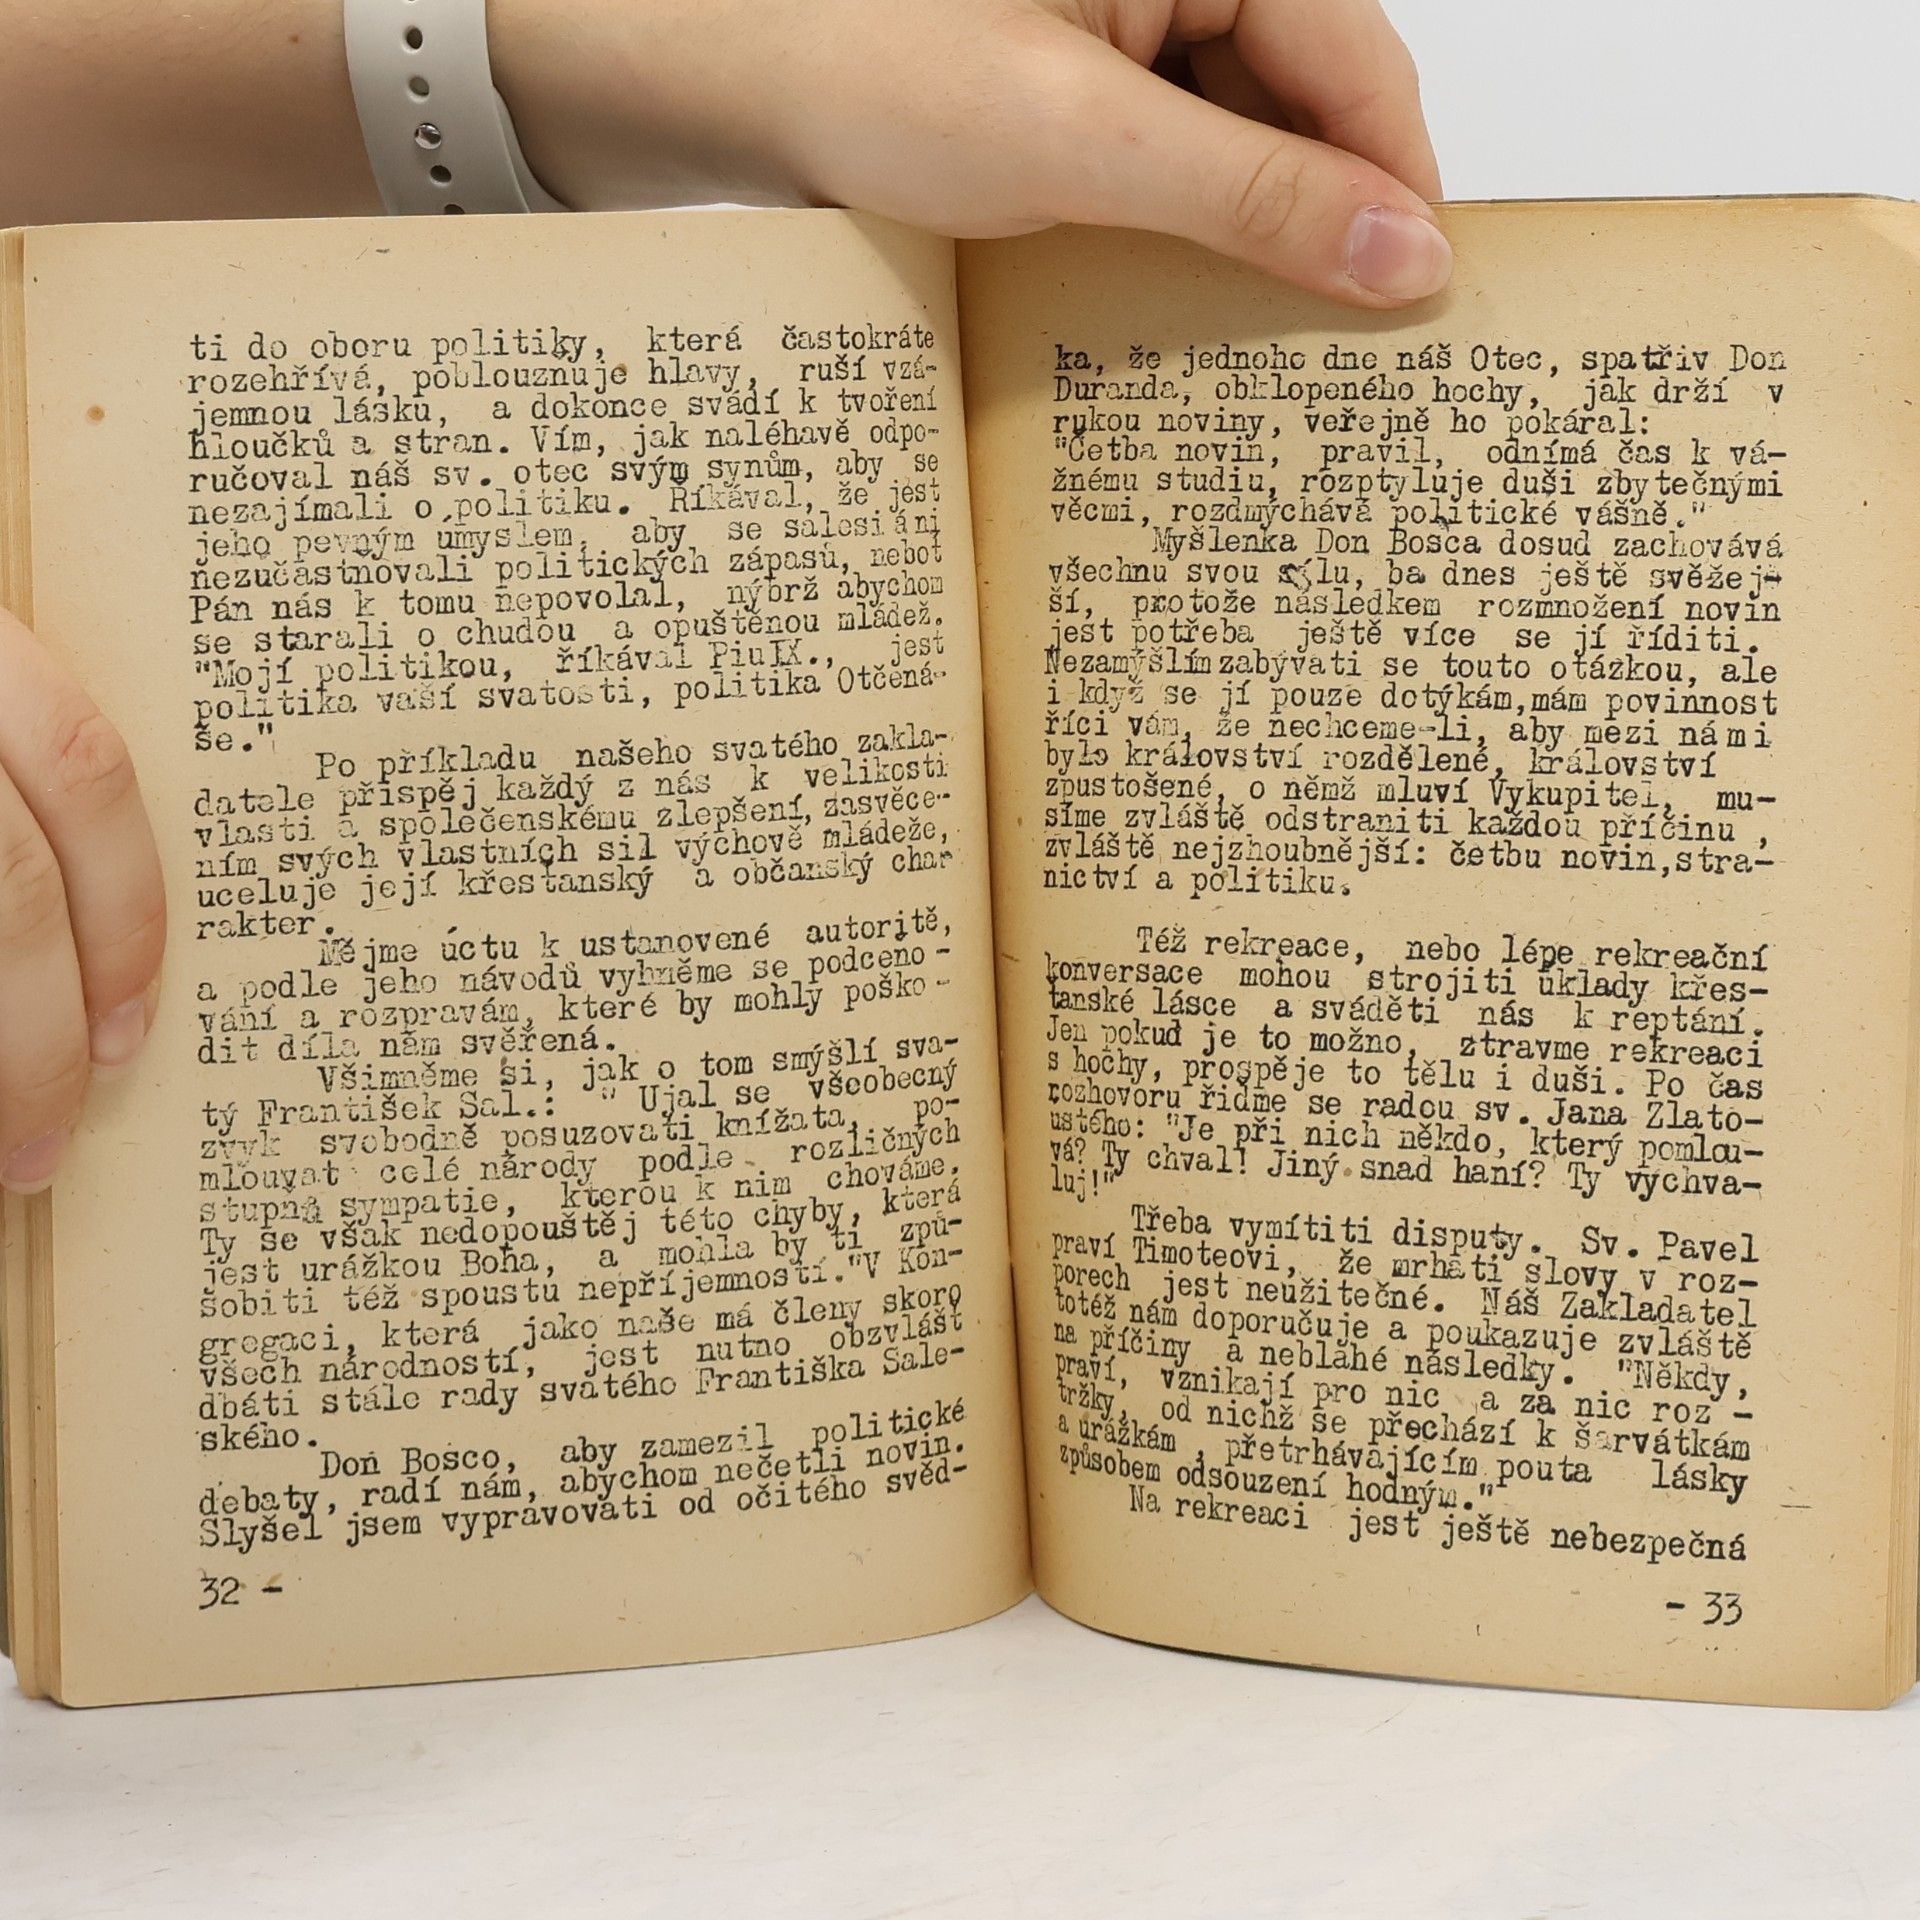 ti do oboru politiky, která častokráte
rozehřívá, poblouznuje hlavy, ruší vzá-
jemnou lásku, a dokonce svádí k tvoření
hloučků a stran. Vím, jak naléhavě odpo-
ručoval náš sv. otec svým synům, aby se
nezajímali o politiku. Říkával, že jest
jeho pevným úmyslem, aby se salesiáni
nezúčastnovali politických zápasů, neboť
Pán nás k tomu nepovolal, nýbrž abychom
se starali o chudou a opuštěnou mládež.
"Mojí politikou, říkával PiuIX., jest
politika vaší svatosti, politika Otčená-
še."
Po příkladu našeho svatého zakla-
datele přispěj každý z nás k velikosti
vlasti a společenskému zlepšení, zasvěce-
ním svých vlastních sil výchově mládeže,
uceluje její křesťanský a občanský char
rakter.
Mějme úctu k ustanovené autoritě,
a podle jeho návodů vyhněme se podceňo -
vání a rozpravám, které by mohly poško -
dit díla nám svěřená.
Všimněme si, jak o tom smýšlí sva-
tý František Sal.: " Ujal se všeobecný
zvyk svobodně posuzovati knížata, po-
mlouvat celé národy podle rozličných
stupňů sympatie, kterou k nim chováme.
Ty se však nedopouštěj této chyby, která
jest urážkou Boha, a mohla by ti způ-
sobiti též spoustu nepříjemností."V Kon-
gregaci, která jako naše má členy skoro
všech národností, jest nutno obzvlášť
dbáti stále rady svatého Františka Sale-
ského.
Don Bosco, aby zamezil politické
debaty, radí nám, abychom nečetli novin.
Slyšel jsem vypravovati od očitého svěd-
32 -
ka, že jednoho dne náš Otec, spatřiv Don
Duranda, obklopeného hochy, jak drží v
rukou noviny, veřejně ho pokáral:
"Četba novin, pravil, odnímá čas k vá-
žnému studiu, rozptyluje duši zbytečnými
věcmi, rozdmýchává politické vášně."
Myšlenka Don Bosca dosud zachovává
všechnu svou sílu, ba dnes ještě svěžej-
ší, protože následkem rozmnožení novin
jest potřeba ještě více se jí říditi.
Nezamýšlím zabývati se touto otázkou, ale
i když se jí pouze dotýkám,mám povinnost
říci vám, že nechceme-li, aby mezi námi
bylo království rozdělené, království
zpustošené, o němž mluví Vykupitel, mu-
síme zvláště odstraniti každou příčinu ,
zvláště nejzhoubnější: četbu novin,stra-
nictví a politiku.
Též rekreace, nebo lépe rekreační
konversace mohou strojiti úklady křes-
ťanské lásce a sváděti nás k reptání.
Jen pokud je to možno, ztravme rekreaci
s hochy, prospěje to tělu i duši. Po čas
rozhovoru řiďme se radou sv. Jana Zlato-
ustého: "Je při nich někdo, který pomlou-
vá? Ty chval! Jiný snad haní? Ty vychva-
luj!"
Třeba vymítiti disputy. Sv. Pavel
praví Timoteovi, že mrhati slovy v roz-
porech jest neužitečné. Náš Zakladatel
totéž nám doporučuje a poukazuje zvláště
na příčiny a neblahé následky. "Někdy,
praví, vznikají pro nic a za nic roz -
tržky, od nichž se přechází k šarvátkám
a urážkám , přetrhávajícím pouta lásky
způsobem odsouzení hodným."
Na rekreaci jest ještě nebezpečná
- 33